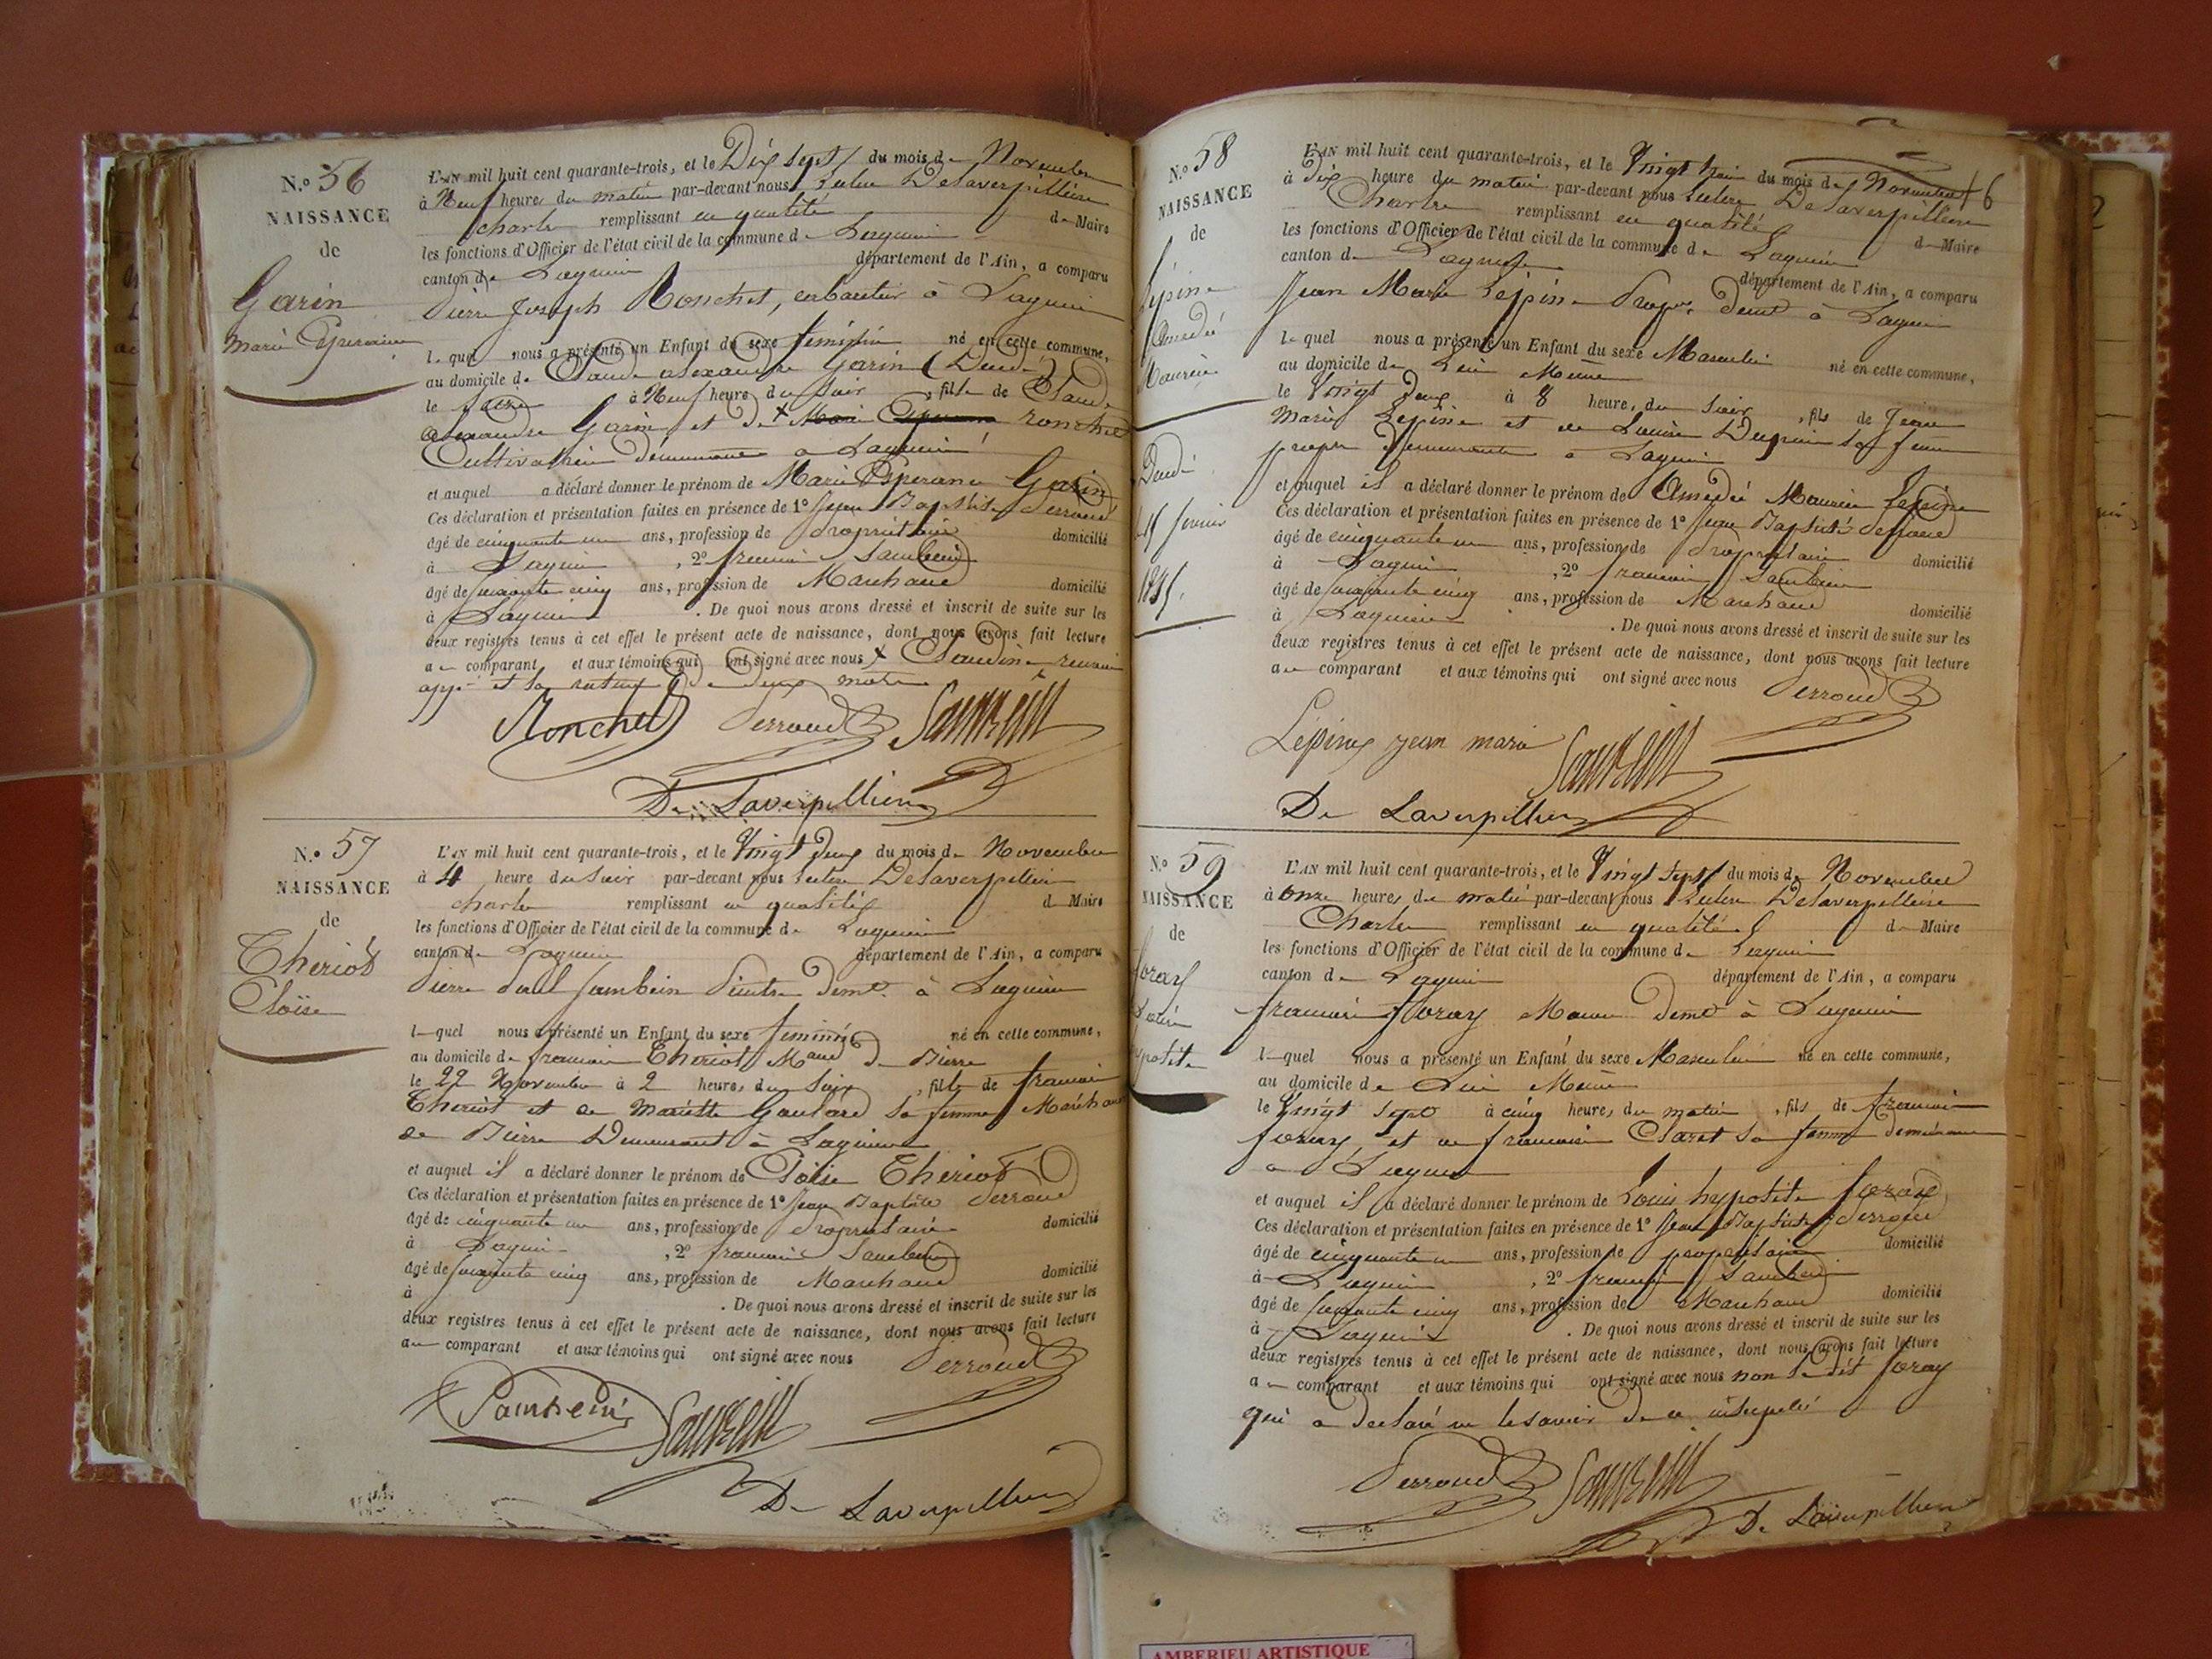 N.º 56
NAISSANCE
de
Garin
Marie Esperance
L'AN mil huit cent quarante-trois, et le Dix sept du mois de Novembre
à Neuf heures du matin par-devant nous Delaverpilliere
charles remplissant en qualité de Maire
les fonctions d'Officier de l'état civil de la commune de Lagnieu
canton de Lagnieu département de l'Ain, a comparu
Pierre Joseph Ronchet, à Lagnieu
lequel nous a présenté un Enfant du sexe feminin né en cette commune,
au domicile de Claude alexandre Garin
le à Neuf heures du soir, fille de Claude
alexandre Garin et de x Marie Esperance ronchet
Cultivateur demeurant a Lagnieu
et auquel a déclaré donner le prénom de Marie Esperance Garin
Ces déclaration et présentation faites en présence de 1º Jean Baptiste Perroud
âgé de cinquante un ans, profession de Propriétaire domicilié
à Lagnieu, 2º francois Sambein
âgé de soixante cinq ans, profession de Marchand domicilié
à Lagnieu. De quoi nous avons dressé et inscrit de suite sur les
deux registres tenus à cet effet le présent acte de naissance, dont nous avons fait lecture
au comparant et aux témoins qui ont signé avec nous x Claudine
et la rature de deux mots
Ronchet Perroud Sambein
De Laverpilliere
N.º 57
NAISSANCE
de
Theriot
Cloïse
L'AN mil huit cent quarante-trois, et le Vingt deux du mois de Novembre
à 4 heure du soir par-devant nous Delaverpilliere
charles remplissant en qualité de Maire
les fonctions d'Officier de l'état civil de la commune de Lagnieu
canton de Lagnieu département de l'Ain, a comparu
Pierre Paul Sambein Peintre demt. à Lagnieu
lequel nous a présenté un Enfant du sexe feminin né en cette commune,
au domicile de francois Theriot Mand de Pierre
le 22 Novembre à 2 heures du soir, fille de francois
Theriot et de Mariette Goulard sa femme Marchand
de Pierre Demeurant à Lagnieu
et auquel il a déclaré donner le prénom de Cloïse Theriot
Ces déclaration et présentation faites en présence de 1º Jean Baptiste Perroud
âgé de cinquante un ans, profession de Propriétaire domicilié
à Lagnieu, 2º francois Sambein
âgé de soixante cinq ans, profession de Marchand domicilié
à . De quoi nous avons dressé et inscrit de suite sur les
deux registres tenus à cet effet le présent acte de naissance, dont nous avons fait lecture
au comparant et aux témoins qui ont signé avec nous Perroud
Sambein Sambein
De Laverpilliere
N.º 58
NAISSANCE
de
Lépine
Amedée
Maurice
Décédé
15 fevrier
L'AN mil huit cent quarante-trois, et le Vingt trois du mois de Novembre 46
à Dix heure du matin par-devant nous Delaverpilliere
Charles remplissant en qualité de Maire
les fonctions d'Officier de l'état civil de la commune de Lagnieu
canton de Lagnieu département de l'Ain, a comparu
Jean Marie Lépine Propre. demt à Lagnieu
lequel nous a présenté un Enfant du sexe Masculin né en cette commune,
au domicile de Lui Même
le Vingt deux à 8 heure, du soir, fils de Jean
Marie Lepine et de Louise Dupuis sa femme
propre demeurants a Lagnieu
et auquel il a déclaré donner le prénom de Amedée Maurice Lepine
Ces déclaration et présentation faites en présence de 1º Jean Baptiste Perroud
âgé de cinquante un ans, profession de Propriétaire domicilié
à Lagnieu, 2º francois Sambein
âgé de soixante cinq ans, profession de Marchand domicilié
à Lagnieu. De quoi nous avons dressé et inscrit de suite sur les
deux registres tenus à cet effet le présent acte de naissance, dont nous avons fait lecture
au comparant et aux témoins qui ont signé avec nous Perroud
Lépine jean marie Sambein
De Laverpilliere
N.º 59
NAISSANCE
de
foray
Louis
hypolite
L'AN mil huit cent quarante-trois, et le Vingt sept du mois de Novembre
à onze heures du matin par-devant nous Delaverpilliere
Charles remplissant en qualité de Maire
les fonctions d'Officier de l'état civil de la commune de Lagnieu
canton de Lagnieu département de l'Ain, a comparu
francois foray Macon demt à Lagnieu
lequel nous a présenté un Enfant du sexe Masculin né en cette commune,
au domicile de Lui Même
le Vingt sept à cinq heures du matin, fils de francois
foray et de francoise Claret sa femme demeurant
a Lagnieu
et auquel il a déclaré donner le prénom de Louis hypolite foray
Ces déclaration et présentation faites en présence de 1º Jean Baptiste Perroud
âgé de cinquante un ans, profession de propriétaire domicilié
à Lagnieu, 2º francois Sambein
âgé de soixante cinq ans, profession de Marchand domicilié
à Lagnieu. De quoi nous avons dressé et inscrit de suite sur les
deux registres tenus à cet effet le présent acte de naissance, dont nous avons fait lecture
au comparant et aux témoins qui ont signé avec nous non le dit foray
qui a déclaré ne le savoir de ce interpellé
Perroud Sambein
De Laverpilliere
AMBERIEU ARTISTIQUE